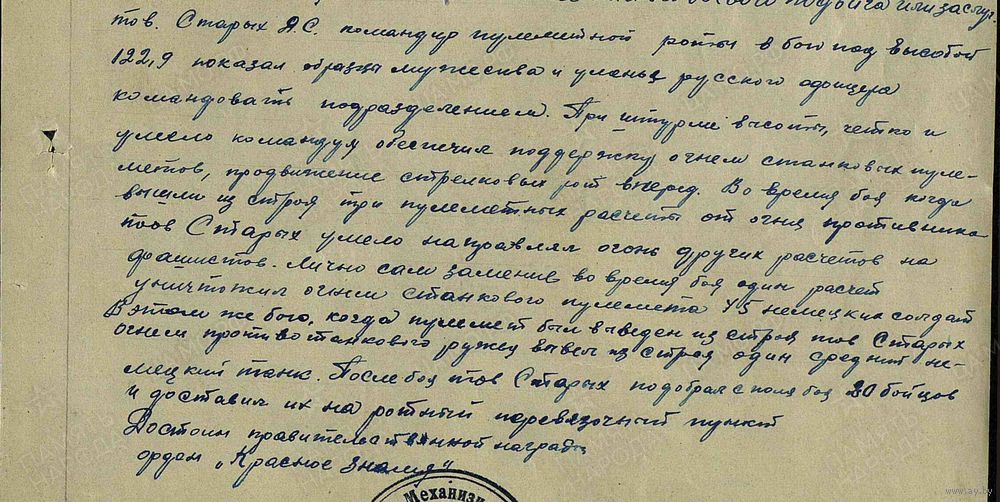 подвига или заслуг
тов. Старых Я.С. командир пулеметной роты в бою под высотой
122,9 показал образцы мужества и уменья русского офицера
командовать подразделением. При штурме высоты, четко и
умело командуя обеспечил поддержку огнем станковых пуле-
метов, продвижение стрелковых рот вперед. Во время боя когда
вышли из строя три пулеметных расчеты от огня противника
тов Старых умело направлял огонь других расчетов на
фашистов. Лично сам заменив во время боя один расчет
уничтожил огнем станкового пулемета 45 немецких солдат
В этом же бою, когда пулемет был выведен из строя тов Старых
огнем противотанкового ружья вывел из строя один средний не-
мецкий танк. После боя тов Старых подобрал с поля боя 20 бойцов
и доставил их на ротный перевязочный пункт
Достоин правительственной награды
орден „Красное Знамя"
Механиз
www.ay.by